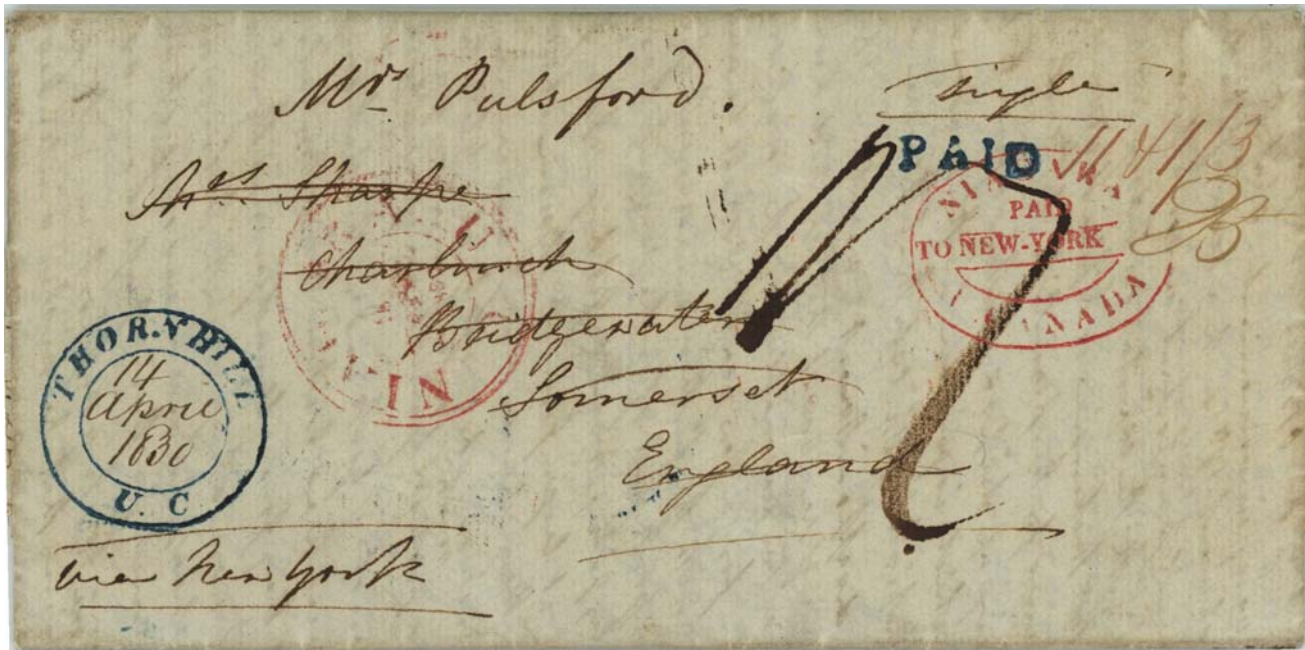 Mrs Pulsford.
Single
PAID
Mrs. Sharpe
PAID
TO NEW-YORK
CANADA
Charlinch
Bridgewater
Somerset
England
THORNHILL
14
April
1830
U. C
via New York